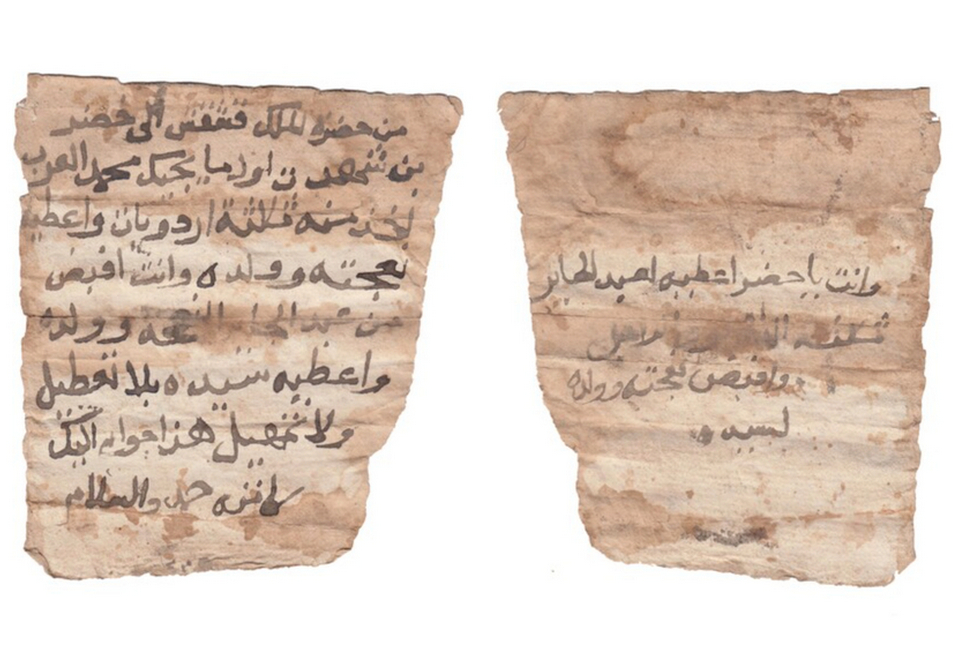 من حضره الملك قشقش الى خضر
بن شهد ان اول ما يجيك محمد العرب
تخذ منه ثلاثة اردويات واعطيه
نعجته وولده وانت اقبض
من عبد الجابر النعجه وولده
واعطيه سيده بلا تعطيل
ولا تمهيل هذا جوابه اليك
حمد والسلام
وانت يا خضر اعطيه لعبد الجابر
ثلثه
واقبض نعجته وولده
لسيده